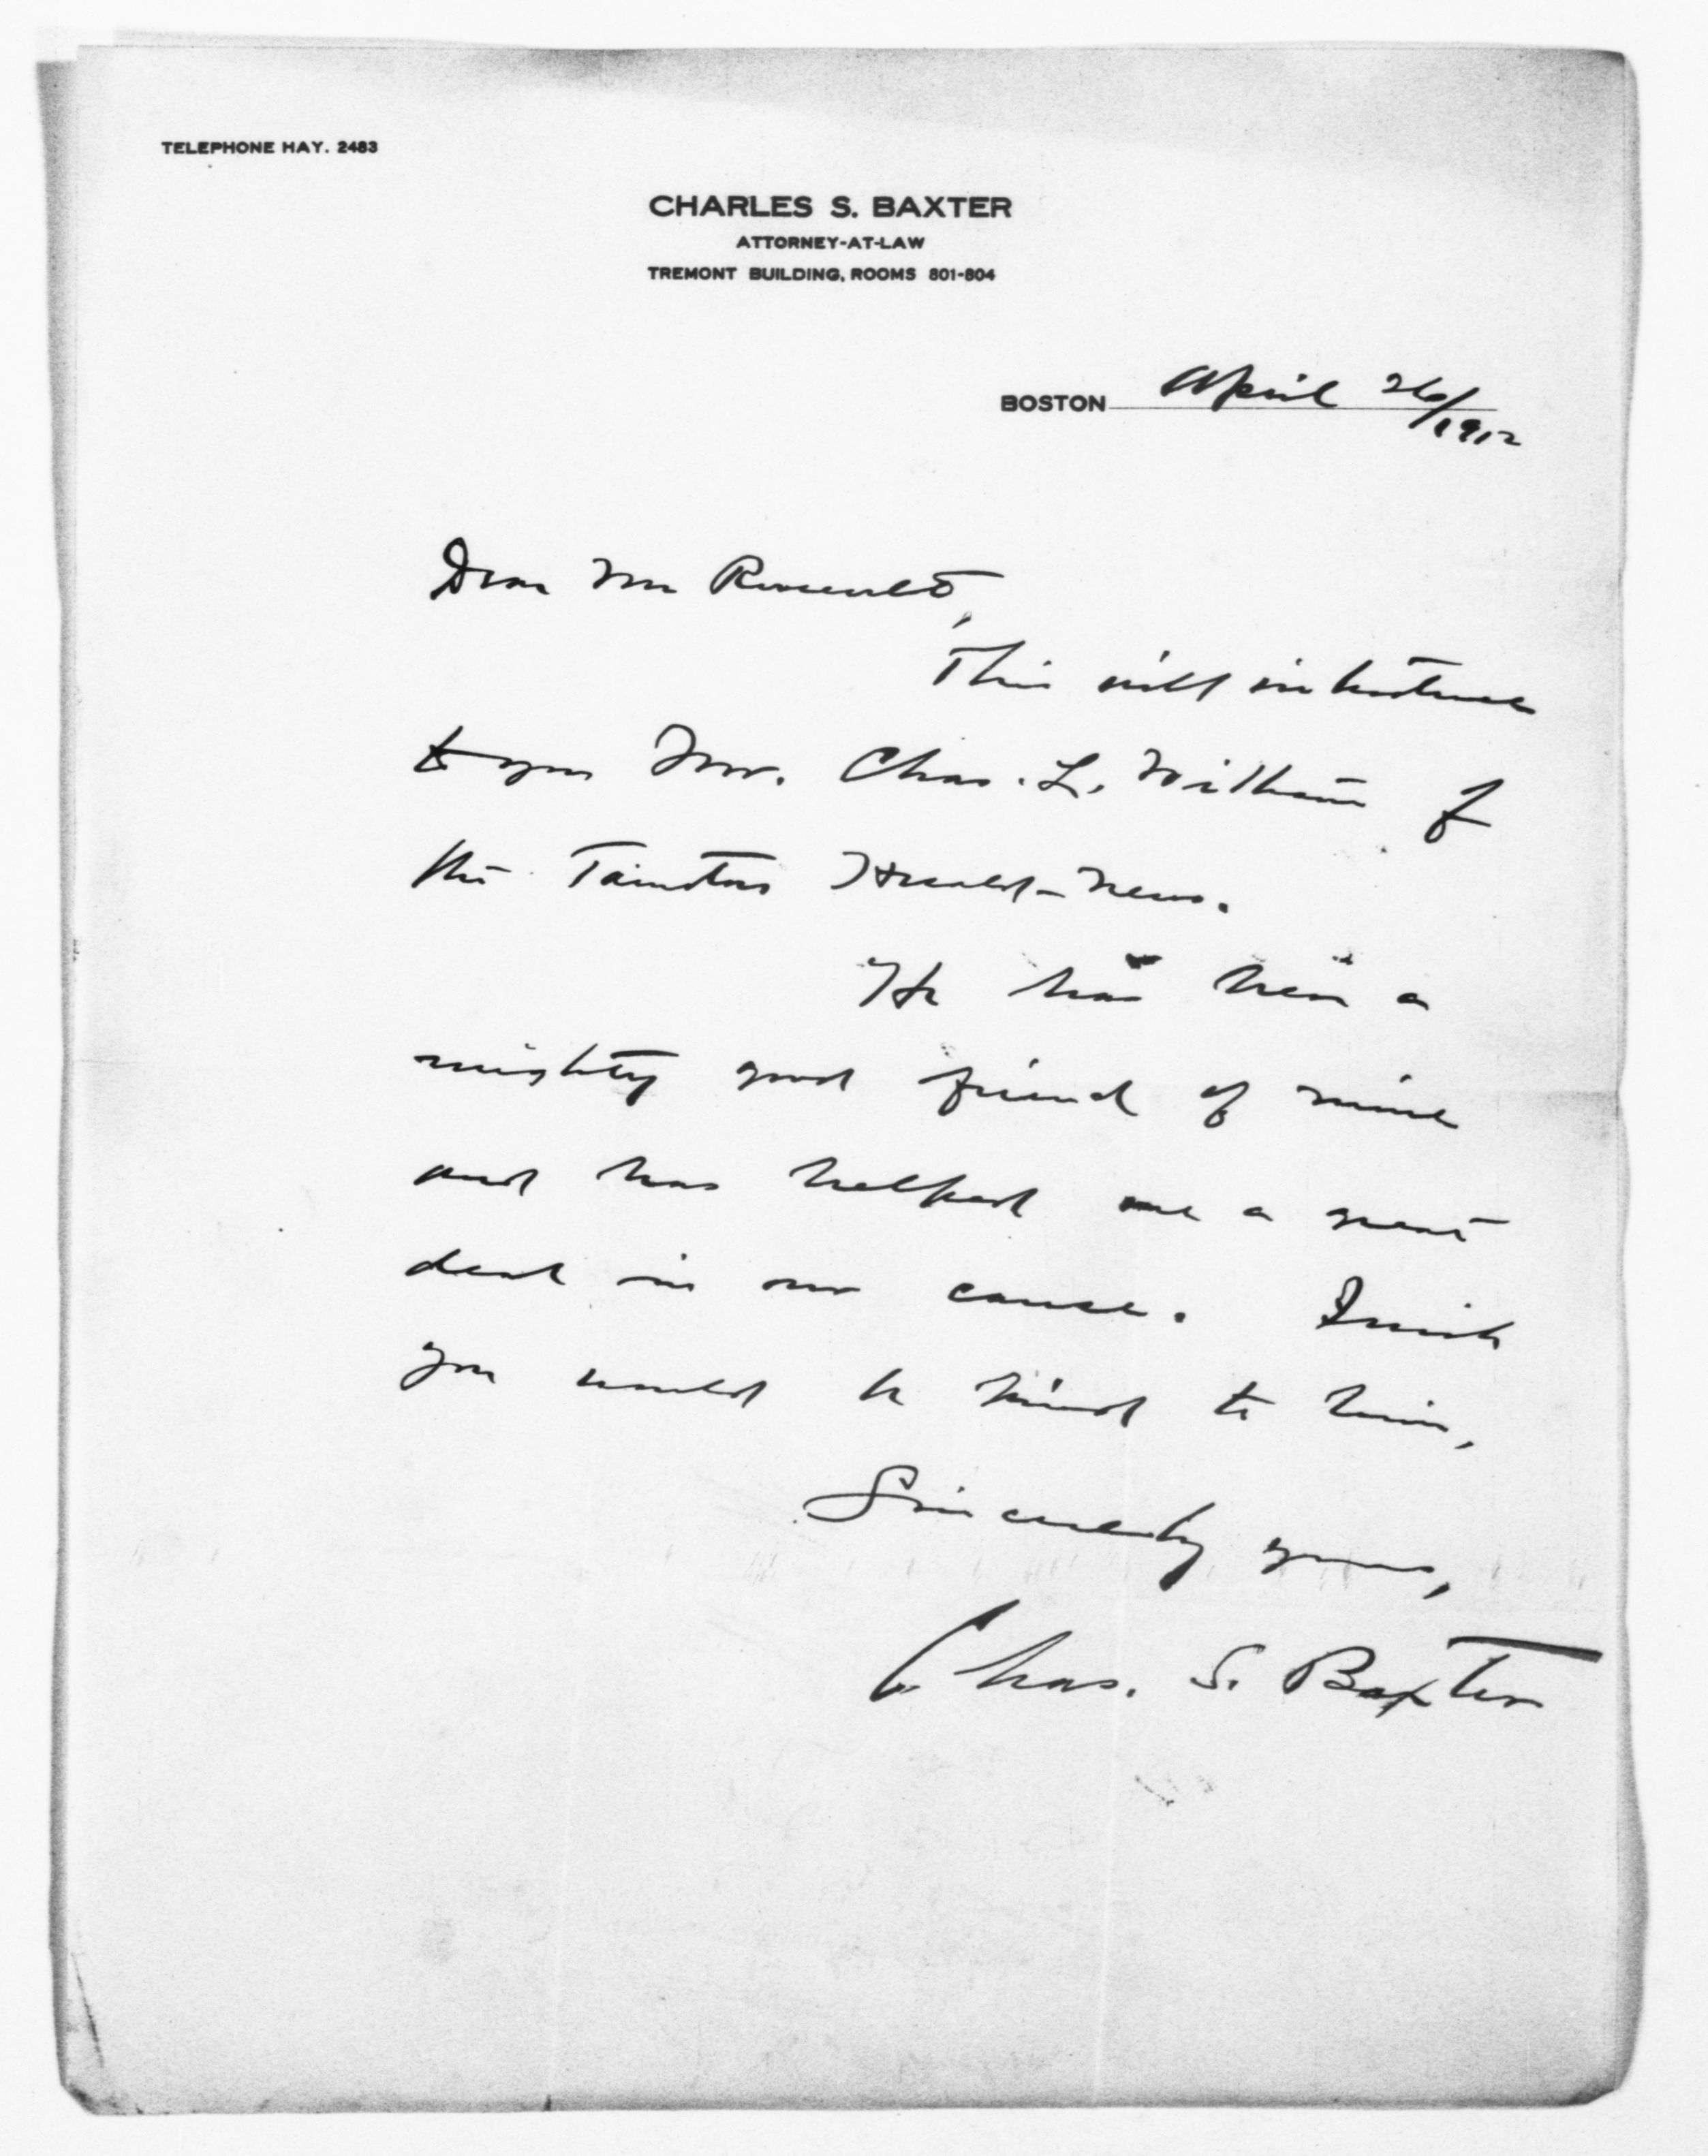 TELEPHONE HAY. 2483
CHARLES S. BAXTER
ATTORNEY-AT-LAW
TREMONT BUILDING, ROOMS 801-804
BOSTON April 26/1912
Dear Mr Roosevelt,
This will introduce
to you Mr. Chas. L. of
the Taunton Herald-News.
He has been a
mighty good friend of mine
and has helped me a great
deal in our cause. I wish
you would be kind to him,
Sincerely yours,
Chas. S. Baxter